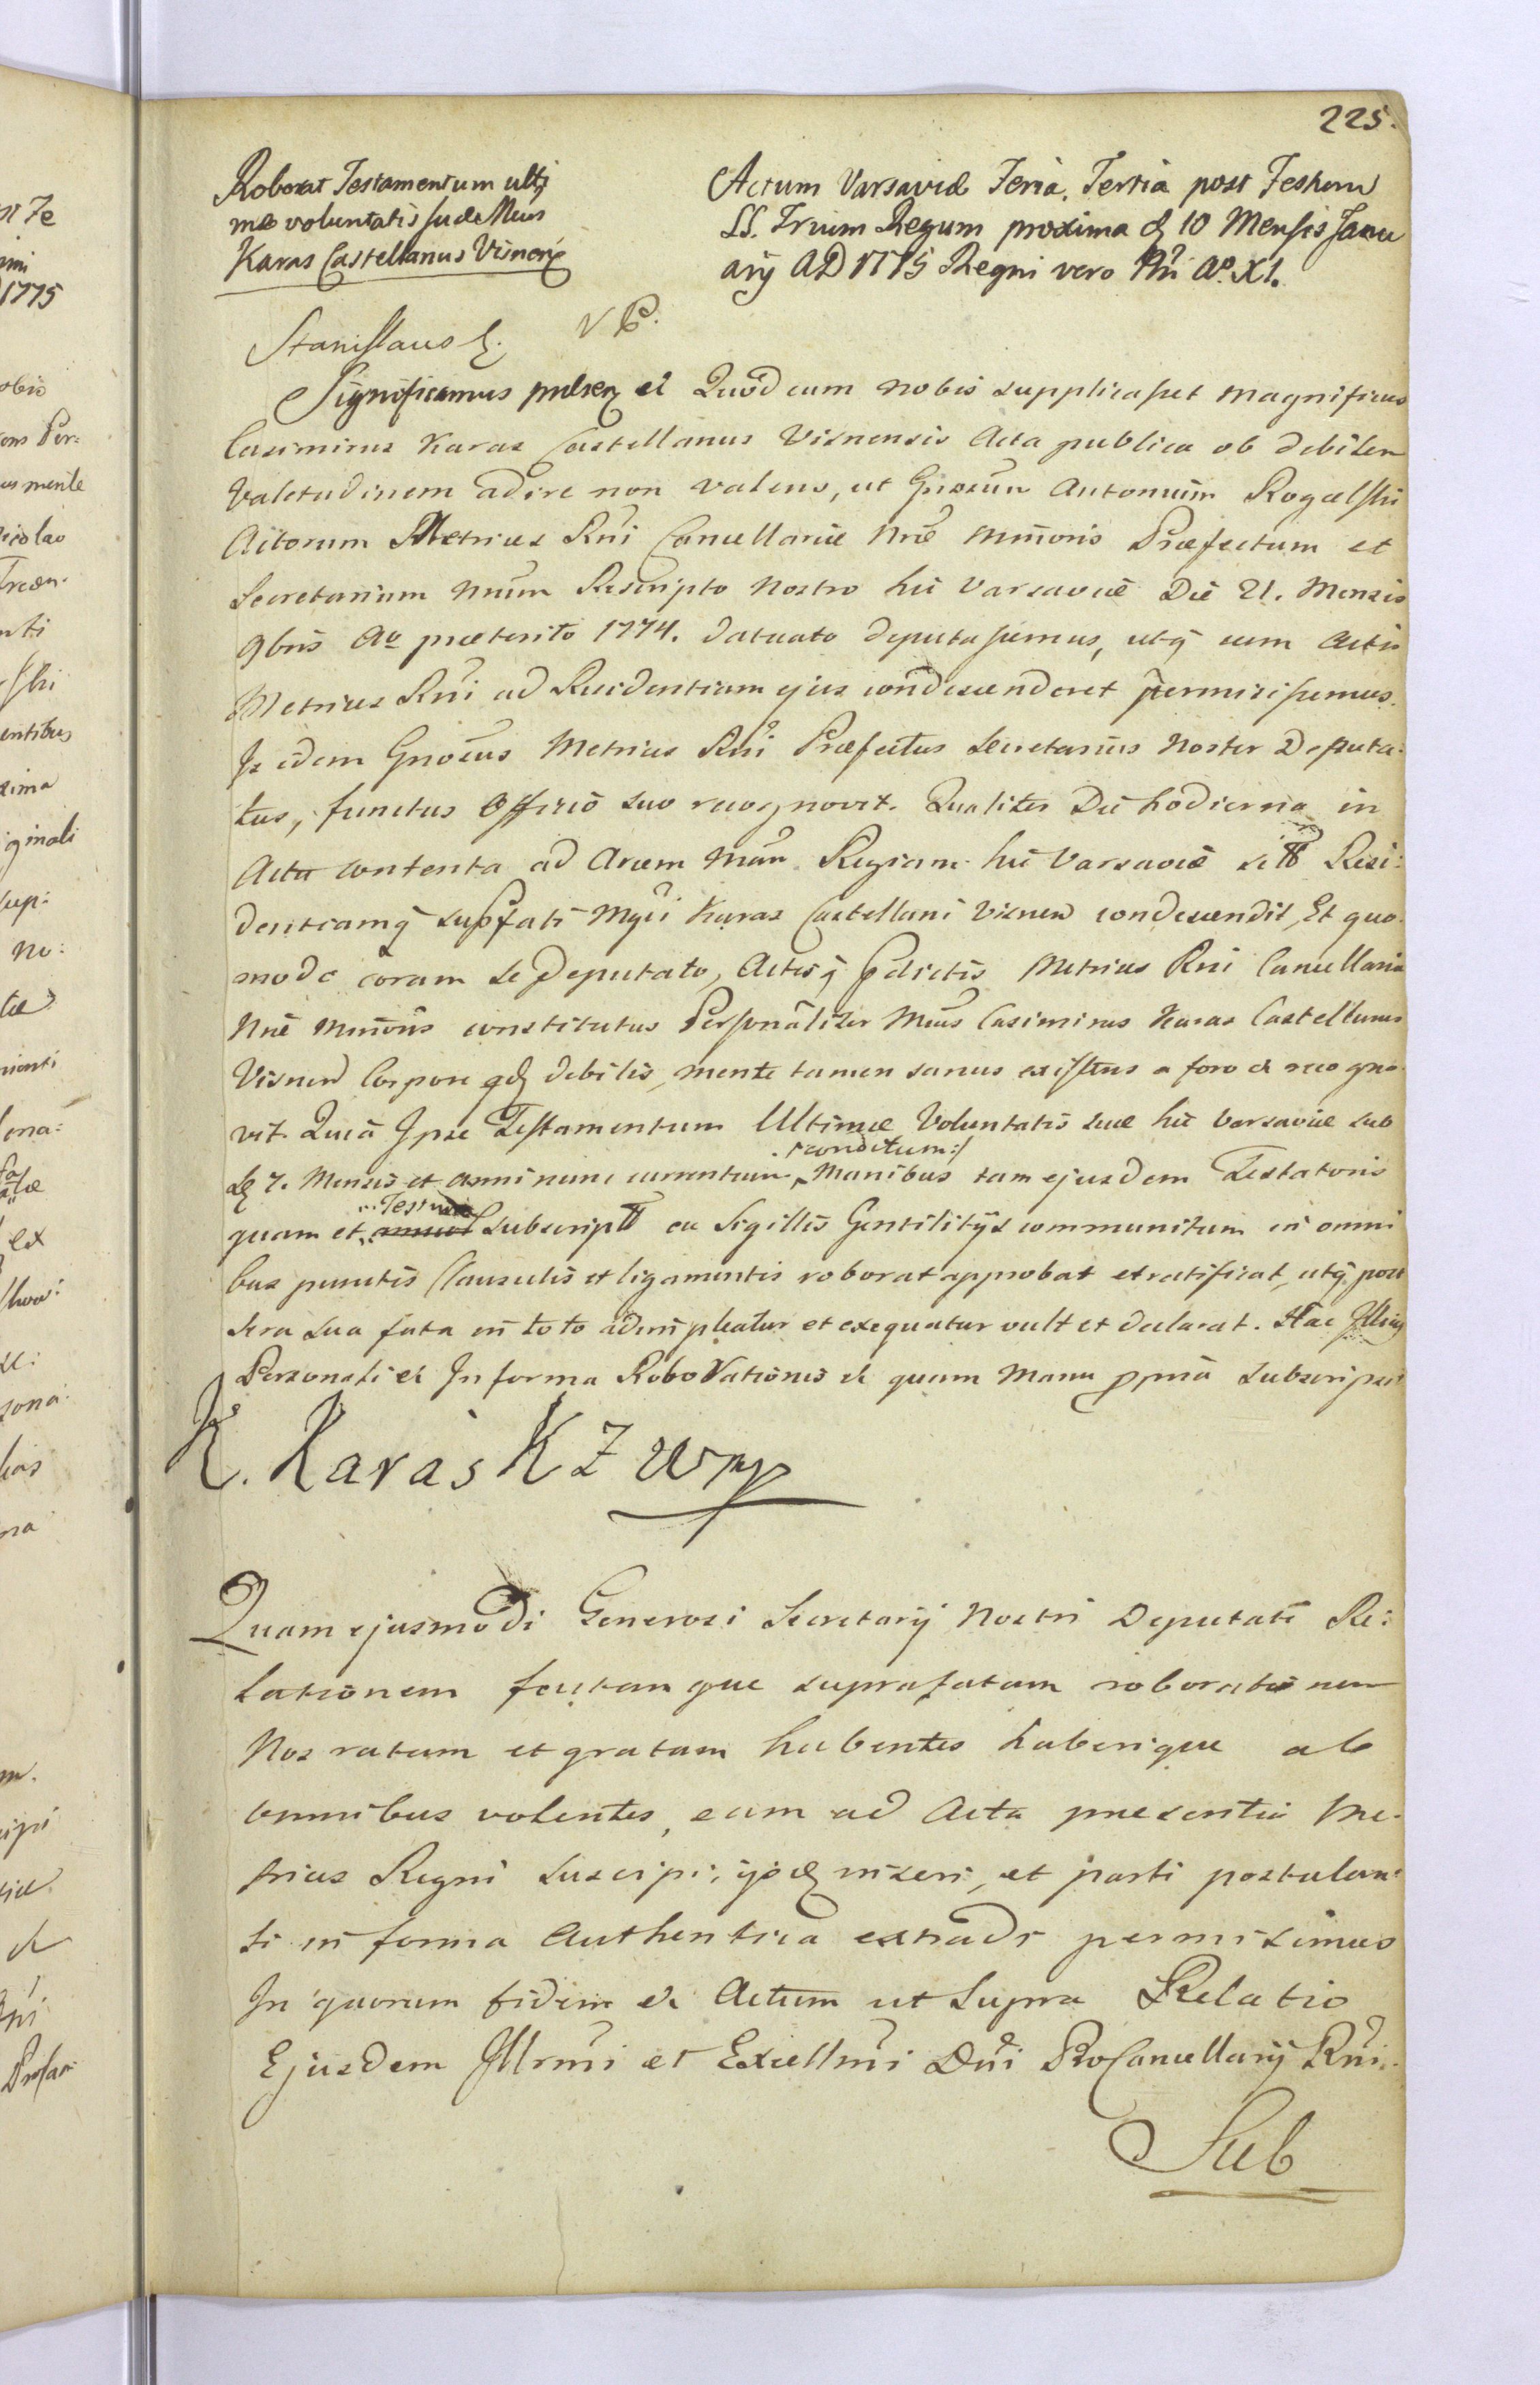 225.
Roborat Testamentum ulti
mæ voluntatis suæ Mcus
Karas Castellanus Visnen̄
Actum Varsaviæ Feria Tertia post Festum
SS. Trium Regum proxima d 10 Mensis Janu
arij AD 1775 Regni vero Nri A° XI.
Stanislaus &. VC.
Significamus pntibq et Quod cum nobis supplicasset Magnificus
Casimirus Karas Castellanus Visnensis Acta publica ob debilem
Valetudinem adire non valens, ut Gnosum Antonium Rogalski
Actorum Metrices Rni Cancellariæ Nræ Minoris Præfectum et
Secretarium Nrum Rescripto Nostro hic Varsaviæ Die 21. Mensis
9bris A° præterito 1774. datuato deputassemus, utq cum Actis
Metrices Rni ad Residentiam ejus condescenderet permisissemus.
Is idem Gnosus Metrices Rni Præfectus Secretarius Noster Deputa:
tus, functus Officio suo recognovit. Qualiter Die hodierna in
Actu contenta ad Arcem Nram Regiam hic Varsaviæ sitt Resi:
dentiamq supfati Mgci Karas Castellani Visnen condescendit, Et quo
modo coram se Deputato, Actisq pdictis Metrices Rni Cancellaria
Nræ Minoris constitutus Personaliter Mcus Casimirus Karas Castellanus
Visnen Corpore qd debilis, mente tamen sanus existens a foro & recogno
vit. Quia Ipse Testamentum Ultimæ Voluntatis suæ hic Varsaviæ sub
d 7. Mensis et anni nunc currentium /:conditum:/ Manibus tam ejusdem Testatoris
quam et Testium Subscriptt ea Sigillis Gentilitijs communitum in omni
bus punctis Clausulis et ligamentis roborat approbat et ratificat, utq post
sera sua fata in toto adimpleatur et exequatur vult et declarat. Hac Illius
Personali & In forma Roborationis & quam Manu ppria subscripsit
K. Karaś K Z W mp
Quam ejusmodi Generosi Secretarij Nostri Deputati Re:
lationem factam que suprafatam roborationem
Nos ratam et gratam habentes haberique ab
omnibus volentes, eam ad Acta præsentia Me:
trices Regni suscipi, ijsq inseri, et parti postulan:
ti in forma Authentica extradi permisimus
In quorum fidem & Actum ut Supra Relatio
Ejusdem Illrmi et Excellmi Dni ProCancellarij Rni.
Sub